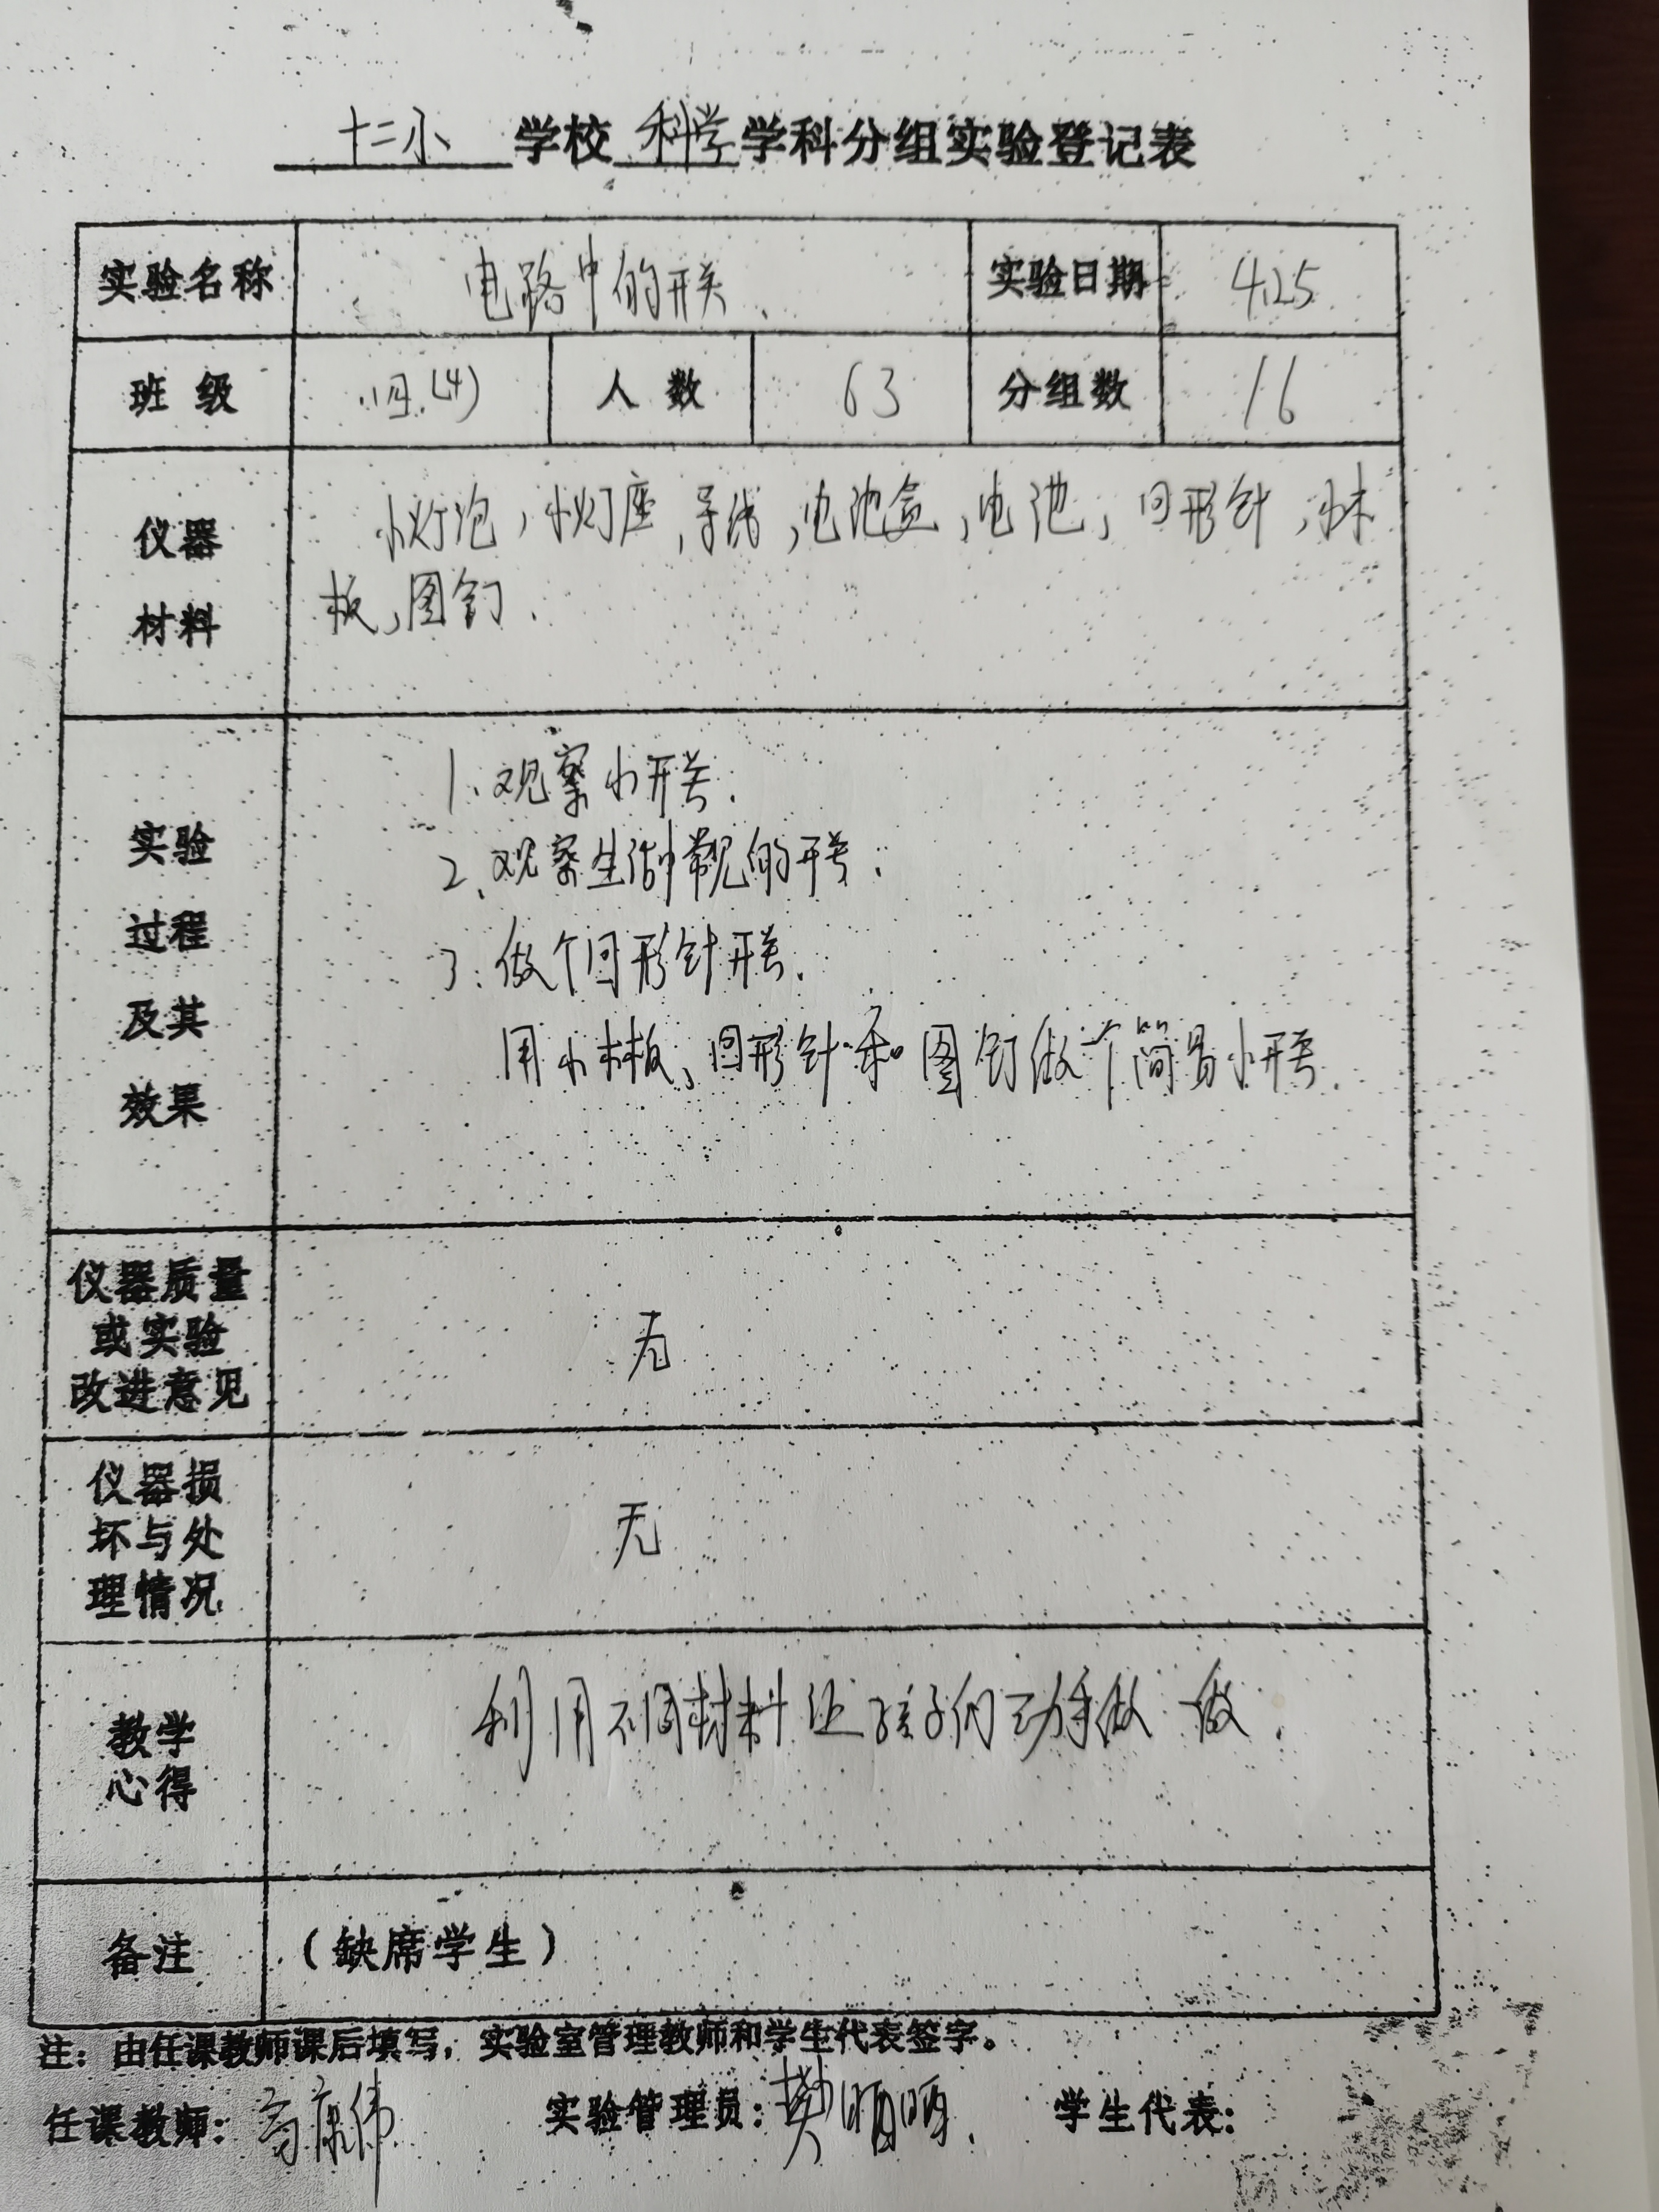 十二小 学校 科学 学科分组实验登记表
实验名称 电路中的开关. 实验日期 4.25
班 级 四.(4) 人 数 63 分组数 16
仪器
材料
小灯泡,小灯座,导线,电池盒,电池,回形针,小木
板,图钉.
实验
过程
及其
效果
1.观察小开关.
2.观察生活中常见的开关.
3.做个回形针开关.
用小木板、回形针和图钉做一个简易小开关.
仪器质量
或实验
改进意见
无
仪器损
坏与处
理情况
无
教学
心得
利用不同材料让孩子们动手做一做.
备注 (缺席学生)
注:由任课教师课后填写,实验室管理教师和学生代表签字。
任课教师:高康伟 实验管理员:樊 学生代表: